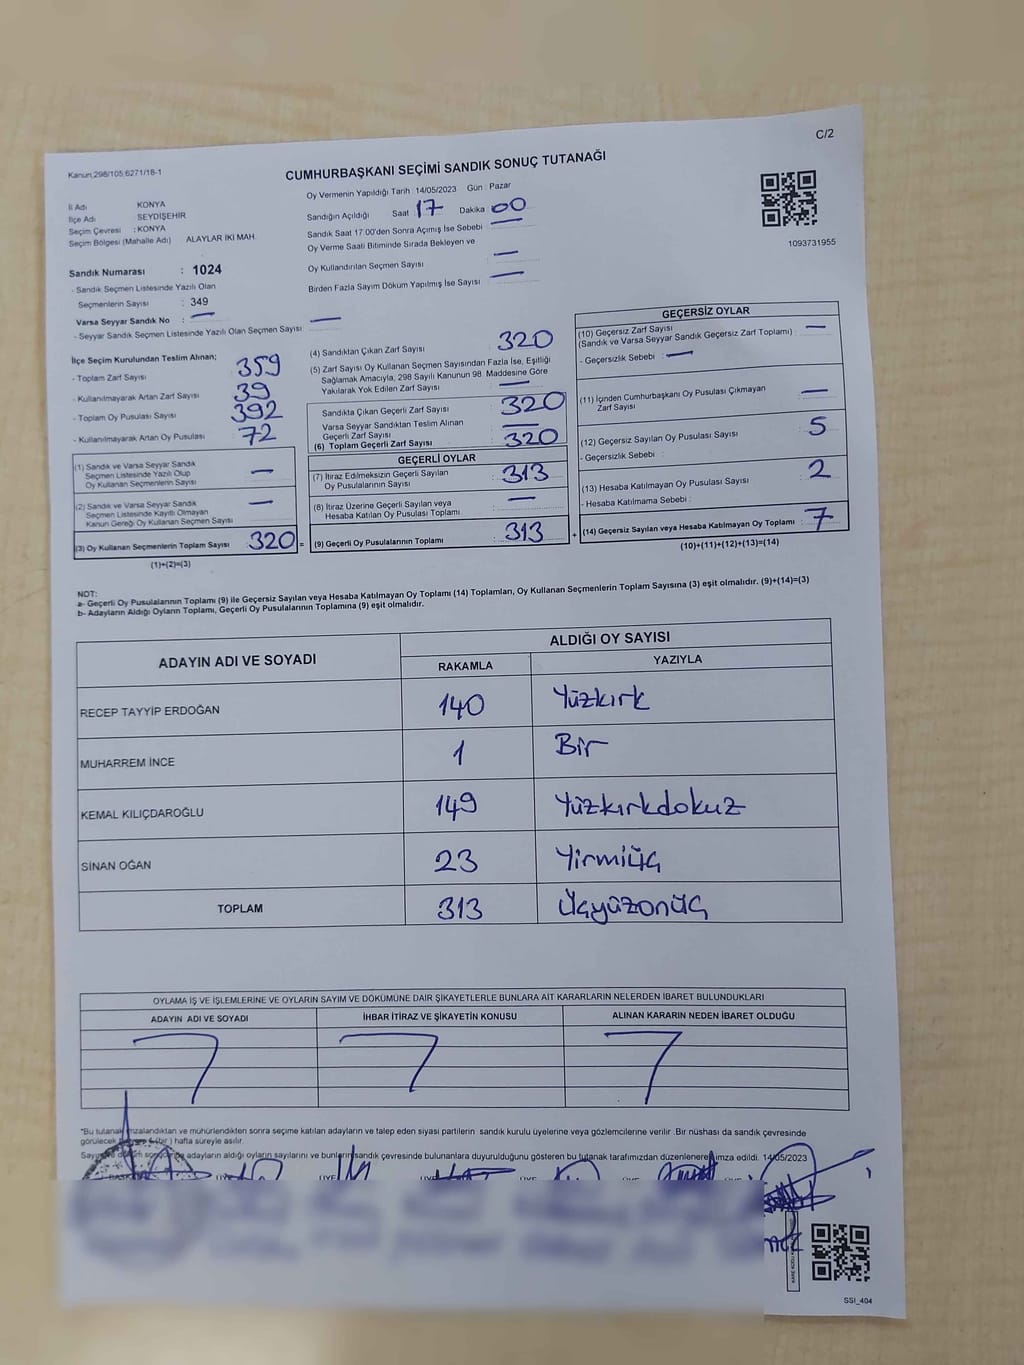 C/2
Kanun;298/105,6271/18-1
CUMHURBAŞKANI SEÇİMİ SANDIK SONUÇ TUTANAĞI
İl Adı KONYA
İlçe Adı : SEYDİŞEHİR
Seçim Çevresi : KONYA
Seçim Bölgesi (Mahalle Adı) ALAYLAR İKİ MAH.
Oy Vermenin Yapıldığı Tarih : 14/05/2023 Gün : Pazar
Sandığın Açıldığı Saat : 17 Dakika : 00
Sandık Saat 17.00'den Sonra Açımış İse Sebebi : —
Oy Verme Saati Bitiminde Sırada Bekleyen ve
Oy Kullandırılan Seçmen Sayısı —
Birden Fazla Sayım Döküm Yapılmış İse Sayısı —
1093731955
Sandık Numarası : 1024
- Sandık Seçmen Listesinde Yazılı Olan
Seçmenlerin Sayısı : 349
Varsa Seyyar Sandık No : —
- Seyyar Sandık Seçmen Listesinde Yazılı Olan Seçmen Sayısı: —
İlçe Seçim Kurulundan Teslim Alınan;
- Toplam Zarf Sayısı 359
- Kullanılmayarak Artan Zarf Sayısı 39
- Toplam Oy Pusulası Sayısı 392
- Kullanılmayarak Artan Oy Pusulası 72
(1) Sandık ve Varsa Seyyar Sandık
Seçmen Listesinde Yazılı Olup
Oy Kullanan Seçmenlerin Sayısı —
(2) Sandık ve Varsa Seyyar Sandık
Seçmen Listesinde Kayıtlı Olmayan
Kanun Gereği Oy Kullanan Seçmen Sayısı —
(3) Oy Kullanan Seçmenlerin Toplam Sayısı 320 =
(1)+(2)=(3)
(4) Sandıktan Çıkan Zarf Sayısı 320
(5) Zarf Sayısı Oy Kullanan Seçmen Sayısından Fazla İse, Eşitliği
Sağlamak Amacıyla, 298 Sayılı Kanunun 98. Maddesine Göre
Yakılarak Yok Edilen Zarf Sayısı —
Sandıkta Çıkan Geçerli Zarf Sayısı 320
Varsa Seyyar Sandıktan Teslim Alınan
Geçerli Zarf Sayısı —
(6) Toplam Geçerli Zarf Sayısı 320
GEÇERLİ OYLAR
(7) İtiraz Edilmeksizin Geçerli Sayılan
Oy Pusulalarının Sayısı : 313
(8) İtiraz Üzerine Geçerli Sayılan veya
Hesaba Katılan Oy Pusulası Toplamı : —
(9) Geçerli Oy Pusulalarının Toplamı : 313 +
GEÇERSİZ OYLAR
(10) Geçersiz Zarf Sayısı
(Sandık ve Varsa Seyyar Sandık Geçersiz Zarf Toplamı) : —
- Geçersizlik Sebebi : —
(11) İçinden Cumhurbaşkanı Oy Pusulası Çıkmayan
Zarf Sayısı : —
(12) Geçersiz Sayılan Oy Pusulası Sayısı : 5
- Geçersizlik Sebebi :
(13) Hesaba Katılmayan Oy Pusulası Sayısı : 2
- Hesaba Katılmama Sebebi :
(14) Geçersiz Sayılan veya Hesaba Katılmayan Oy Toplamı : 7
(10)+(11)+(12)+(13)=(14)
NOT:
a- Geçerli Oy Pusulalarının Toplamı (9) ile Geçersiz Sayılan veya Hesaba Katılmayan Oy Toplamı (14) Toplamları, Oy Kullanan Seçmenlerin Toplam Sayısına (3) eşit olmalıdır. (9)+(14)=(3)
b- Adayların Aldığı Oyların Toplamı, Geçerli Oy Pusulalarının Toplamına (9) eşit olmalıdır.
ADAYIN ADI VE SOYADI ALDIĞI OY SAYISI
RAKAMLA YAZIYLA
RECEP TAYYİP ERDOĞAN 140 Yüzkırk
MUHARREM İNCE 1 Bir
KEMAL KILIÇDAROĞLU 149 Yüzkırkdokuz
SİNAN OĞAN 23 Yirmiüç
TOPLAM 313 Üçyüzonüç
OYLAMA İŞ VE İŞLEMLERİNE VE OYLARIN SAYIM VE DÖKÜMÜNE DAİR ŞİKAYETLERLE BUNLARA AİT KARARLARIN NELERDEN İBARET BULUNDUKLARI
ADAYIN ADI VE SOYADI İHBAR İTİRAZ VE ŞİKAYETİN KONUSU ALINAN KARARIN NEDEN İBARET OLDUĞU
*Bu tutanak imzalandıktan ve mühürlendikten sonra seçime katılan adayların ve talep eden siyasi partilerin sandık kurulu üyelerine veya gözlemcilerine verilir. Bir nüshası da sandık çevresinde
görülecek (bir) hafta süreyle asılır.
adayların aldığı oyların sayılarını ve bunların sandık çevresinde bulunanlara duyurulduğunu gösteren bu tutanak tarafımızdan düzenlenerek imza edildi. 14/05/2023
SSI_404